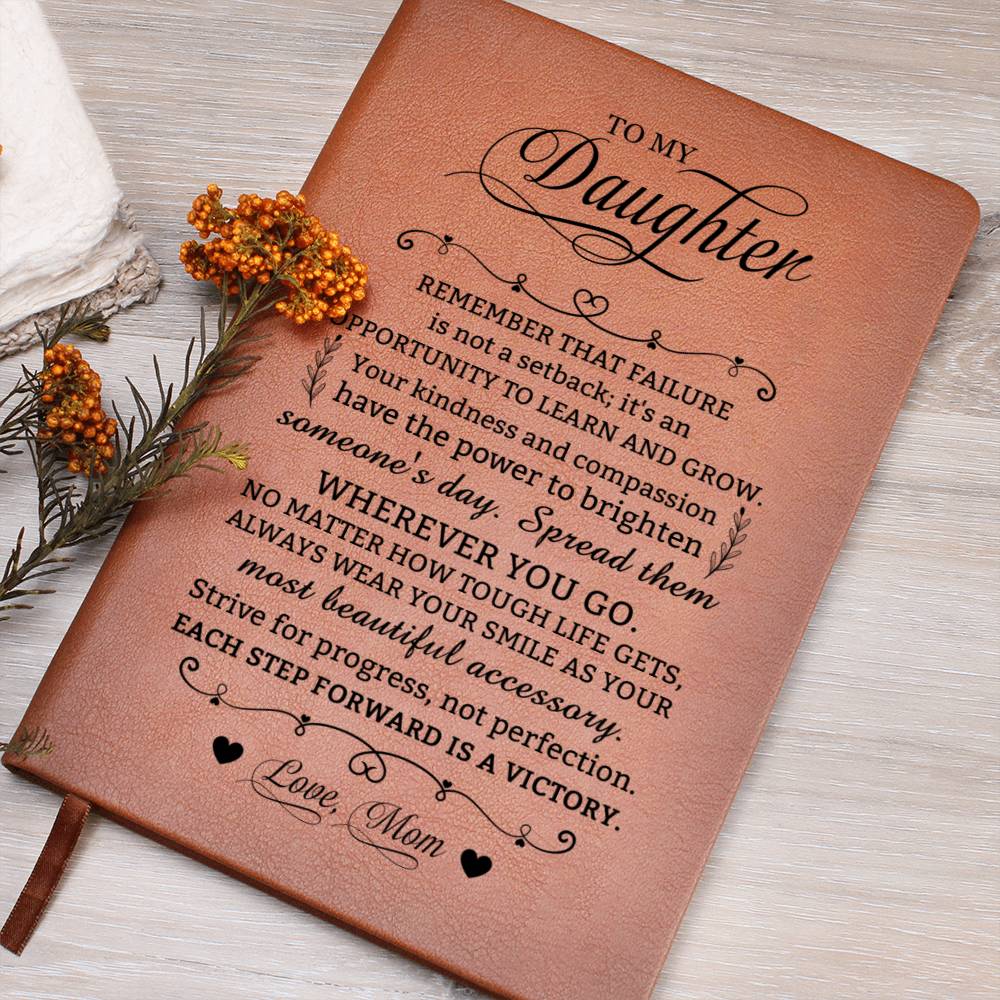 TO MY
Daughter
REMEMBER THAT FAILURE
is not a setback; it's an
OPPORTUNITY TO LEARN AND GROW.
Your kindness and compassion
have the power to brighten
someone's day. Spread them
WHEREVER YOU GO.
NO MATTER HOW TOUGH LIFE GETS,
ALWAYS WEAR YOUR SMILE AS YOUR
most beautiful accessory.
Strive for progress, not perfection.
EACH STEP FORWARD IS A VICTORY.
Love, Mom